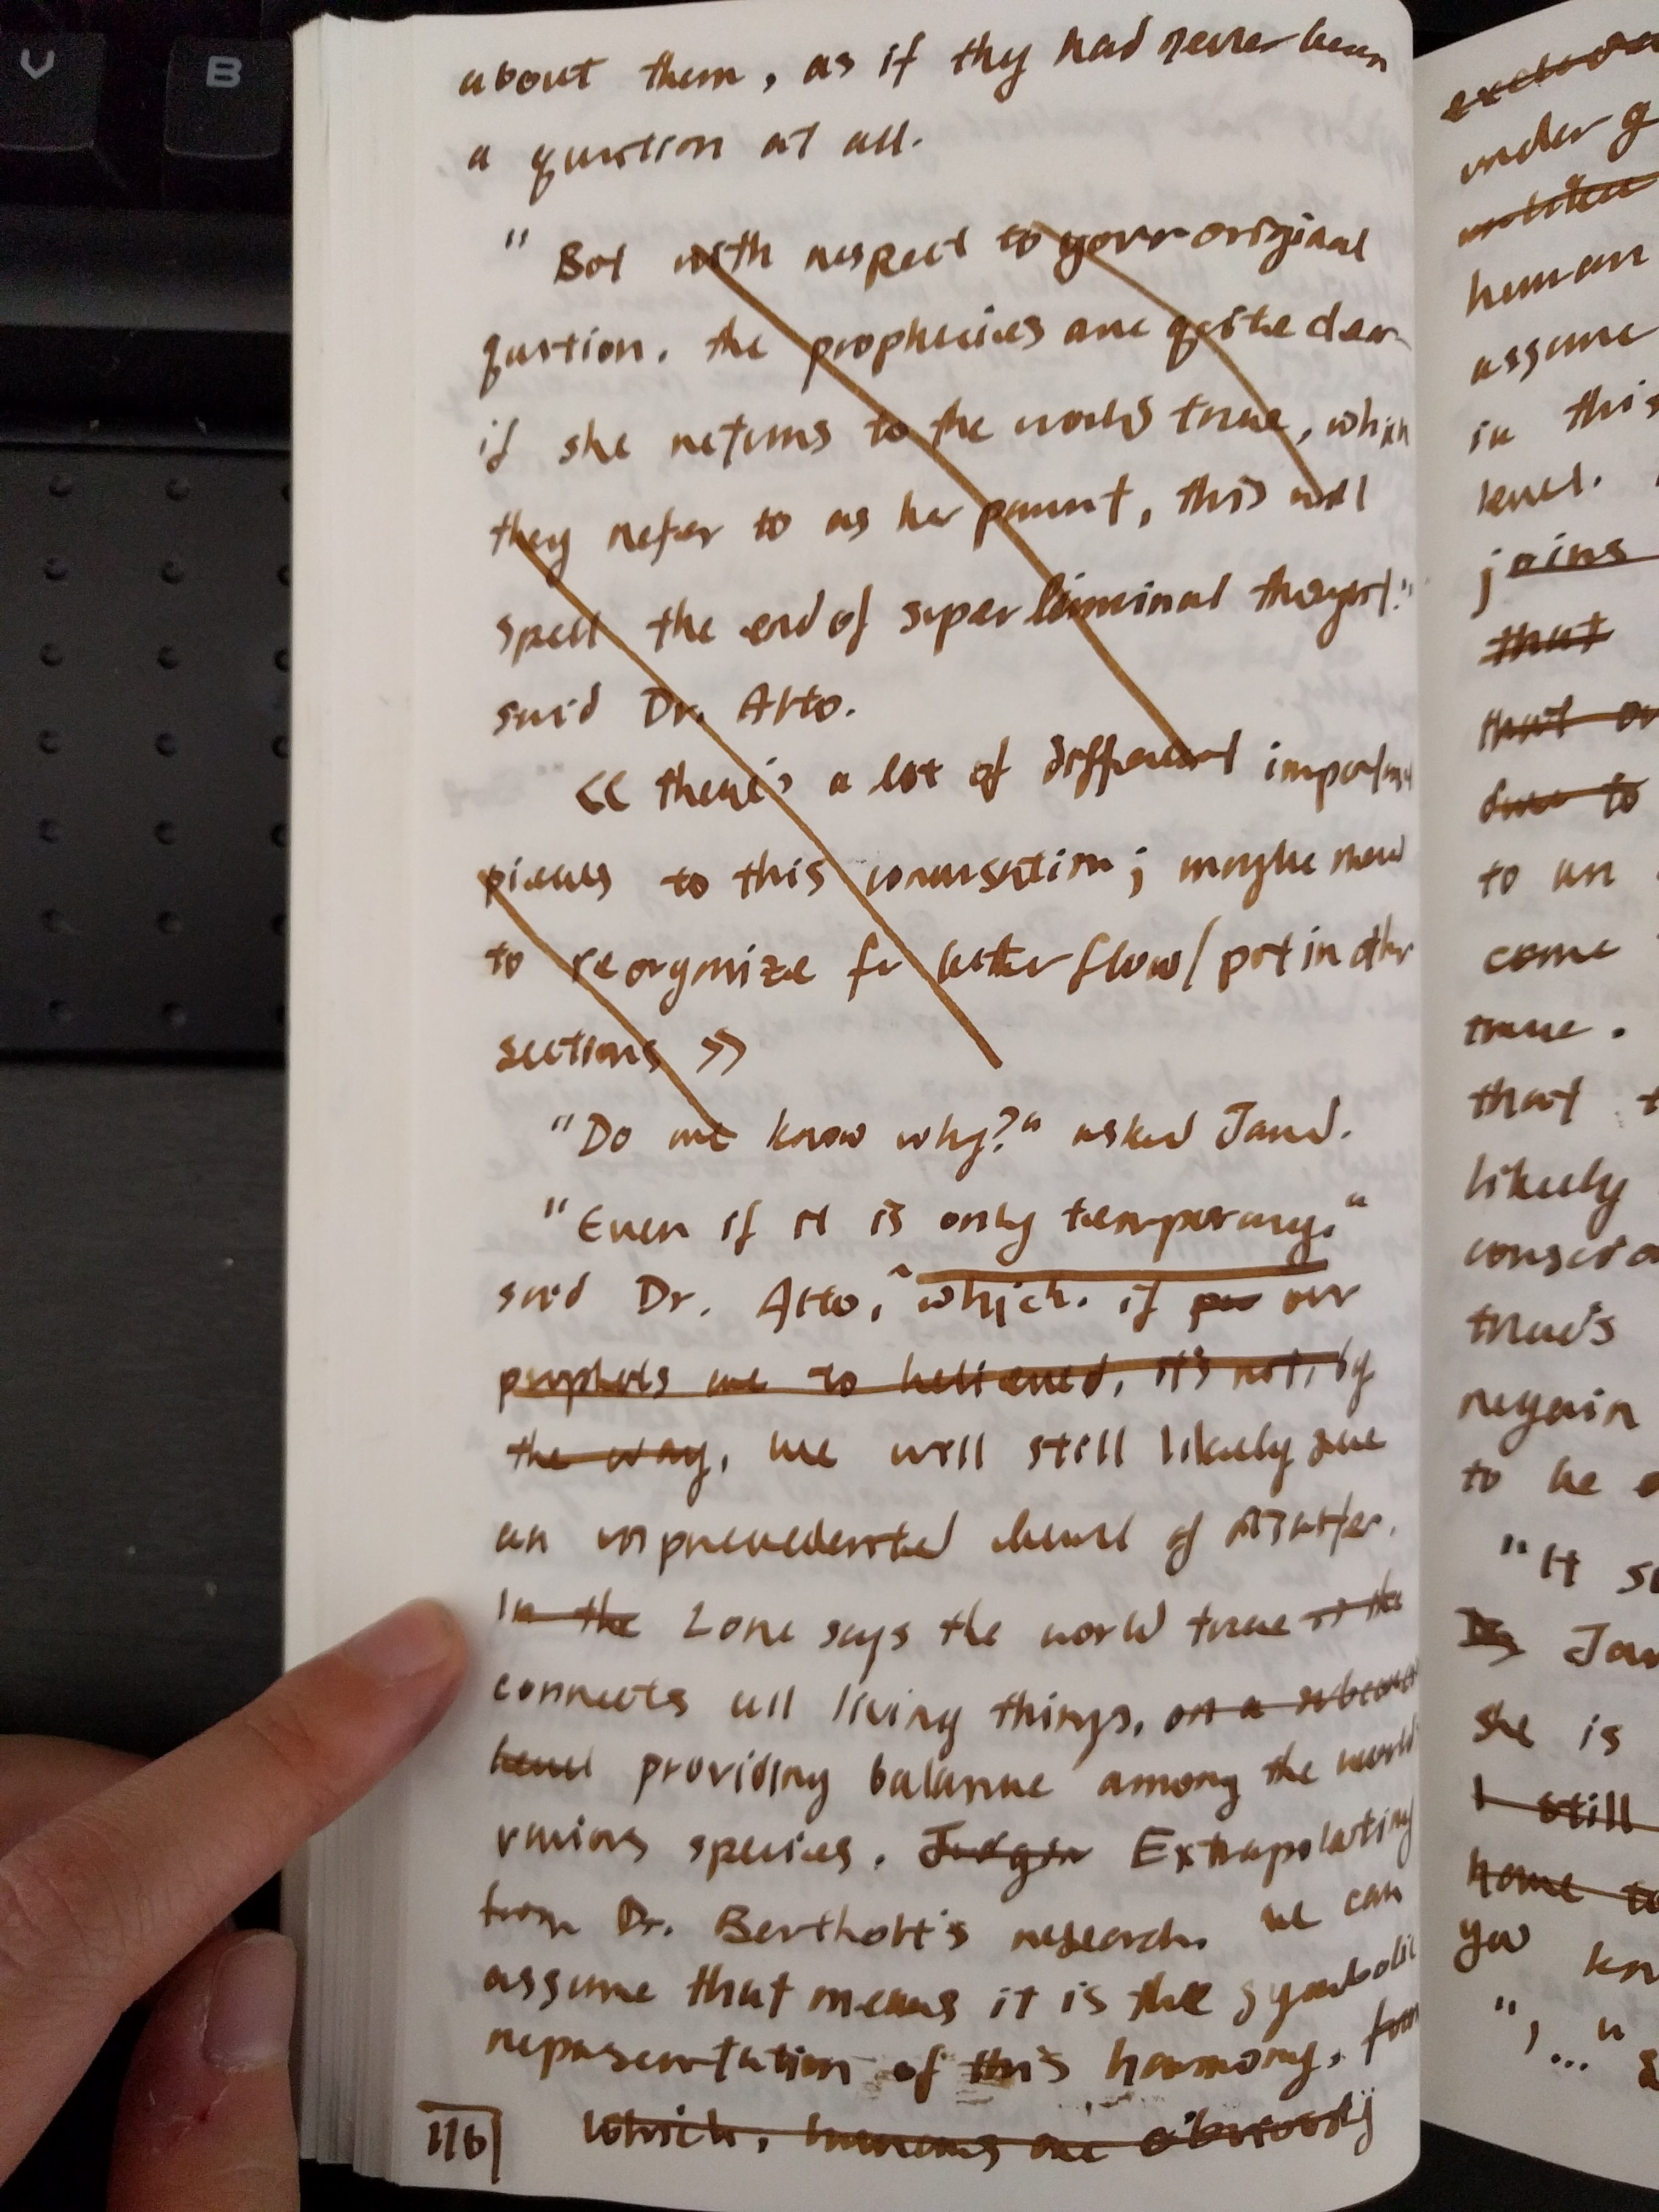 V
B
about them, as if they had never been
a question at all.
"But with respect to your original
question. the prophecies are quite clear
if she returns to the world tree, which
they refer to as her parent, this will
spell the end of superliminal thought."
said Dr. Atto.
<< there's a lot of different important
pieces to this conversation; maybe need
to reorganize for better flow/put in other
sections >>
"Do we know why?" asked Jand.
"Even if it is only temporary,"
said Dr. Atto, "which. if our
prophets are to believed, it's not, by
the way, we will still likely see
an unprecedented level of
In the Lone says the world tree is the
connects all living things, on a subconscious
level providing balance among the world
various species. Judgin Extrapolating
from Dr. Berthott's research. we can
assume that means it is the symbolic
representation of this harmony, from
116 which, humans are obviously
under g
human
assume
in this
level.
joins
that
that ou
due to
to an
come
tree.
that t
likely
conscio
tree's
regain
to be
"It s
Dr Jan
she is
I still
home to
you kn
"..."